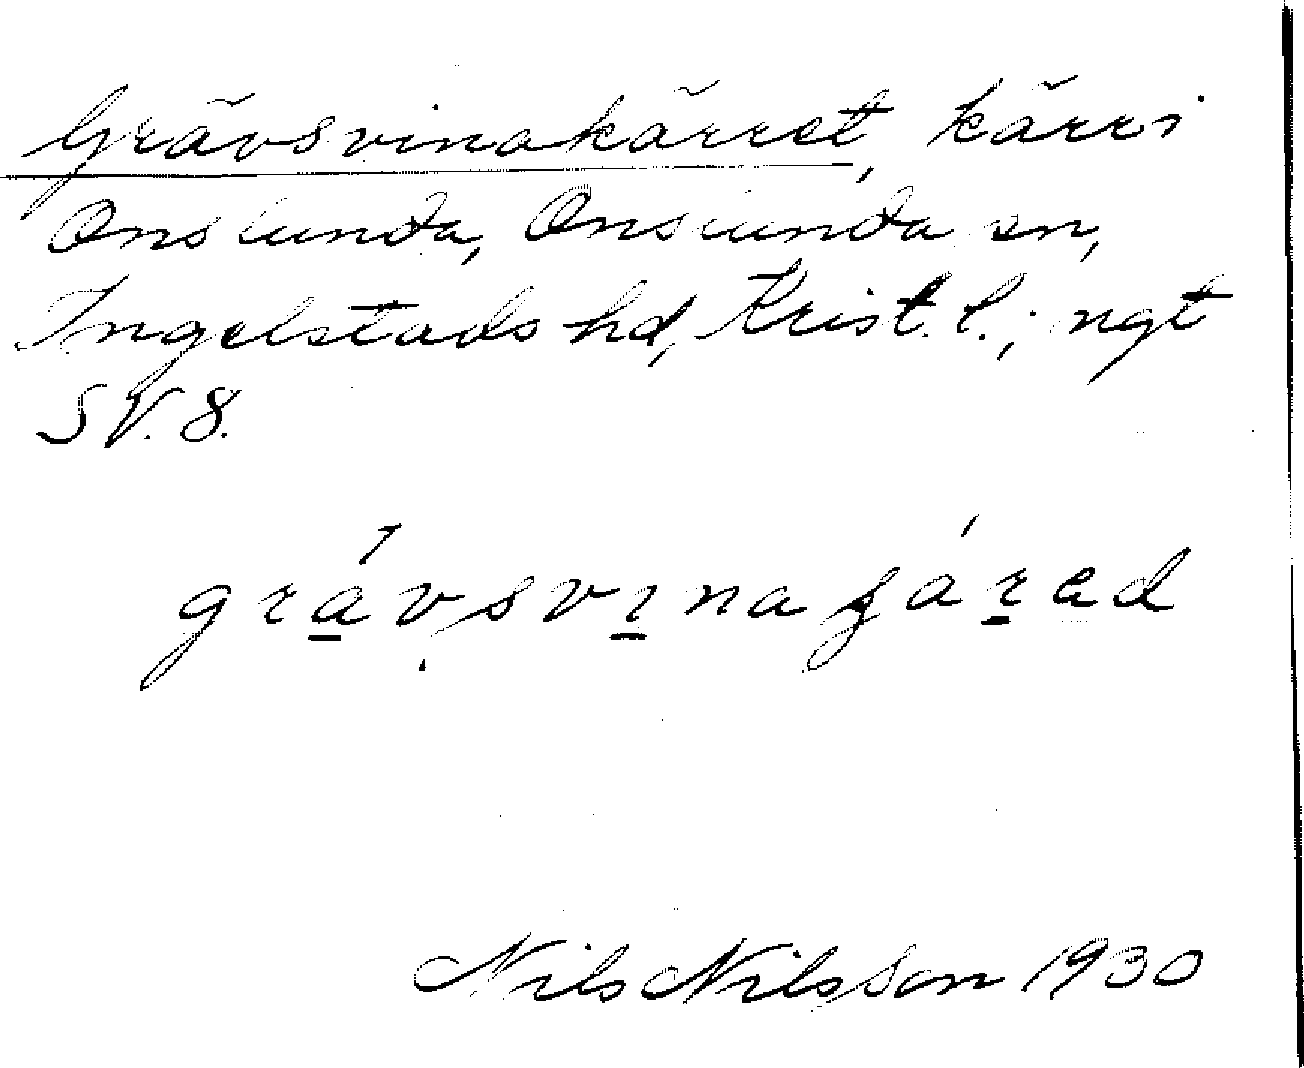 Grävsvinakärret, kärr i
Onslunda, Onslunda sn,
Ingelstads hd, Krist. l.; ngt
SV. 8.
grávsvınaʓáred
Nils Nilsson 1930